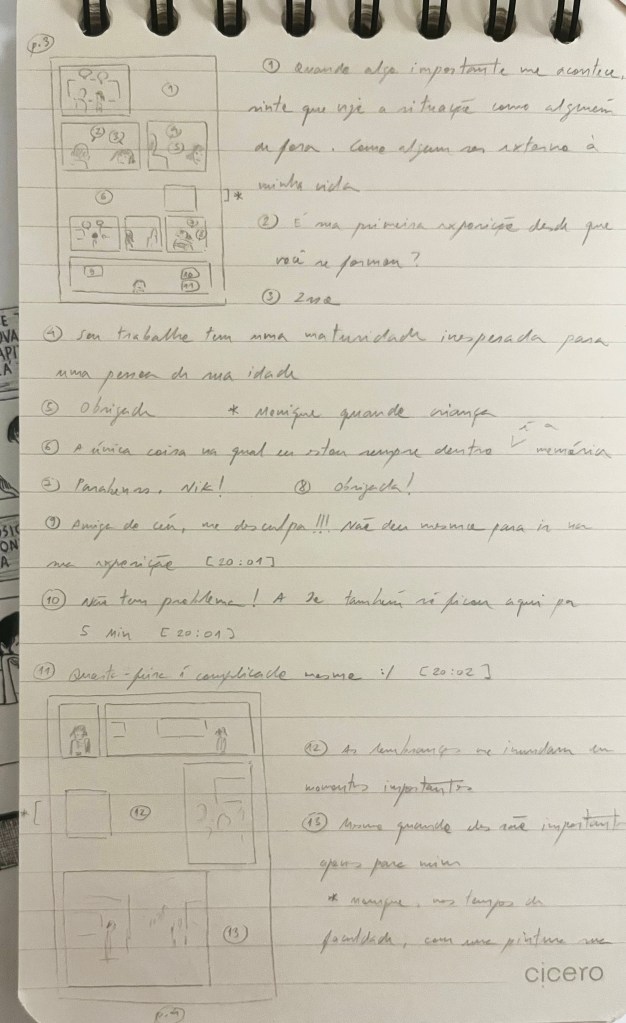 p.3
① Quando algo importante me acontece,
sinto que vejo a situação como alguém
de fora. Como algum ser externo à
minha vida
② É sua primeira exposição desde que
você se formou?
③ Isso
④ Seu trabalho tem uma maturidade inesperada para
uma pessoa da sua idade
⑤ Obrigada * Monique quando criança
⑥ A única coisa na qual eu estou sempre dentro é a memória
⑦ Parabéns, Nik! ⑧ Obrigada!
⑨ Amiga do céu, me desculpa!!! Não deu mesmo para ir na
sua exposição [20:01]
⑩ Não tem problema! A também só ficou aqui por
5 min [20:01]
⑪ Quarta-feira é complicado mesmo :/ [20:02]
⑫ As lembranças me inundam em
momentos importantes
⑬ Mesmo quando eles são importantes
apenas para mim
* Monique, nos tempos de
faculdade, com uma pintura sua
p.4
cicero